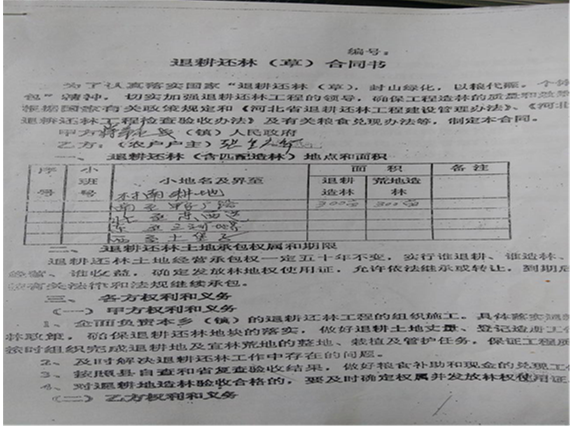 编号：
退耕还林（草）合同书
为了认真落实国家“退耕还林（草），封山绿化，以粮代赈，个体
包”精神，切实加强退耕还林工程的领导，确保工程造林的质量和效果
根据国家有关政策规定和《河北省退耕还林工程建设管理办法》、《河北
退耕还林工程检查验收办法》及有关粮食兑现办法等，制定本合同。
甲方：（镇）人民政府
乙方：（农户户主）
一、退耕还林（含匹配造林）地点和面积
序号 小班号 小地名及界至 面积 备注
退耕造林 荒地造林
村南耕地
300亩 300亩
二、退耕还林土地承包权属和期限
退耕还林土地经营承包权一定五十年不变，实行谁退耕、谁造林、
经营、谁收益，确定发放林地权使用证，允许依法继承或转让，到期后
按有关法律和法规继续承包。
三、各方权利和义务
（一）甲方权利和义务
1、全面负责本乡（镇）的退耕还林工程的组织施工，具体落实退耕
林政策，确保退耕还林地块的落实，做好退耕土地丈量、登记造册工作
按时组织完成退耕地及宜林荒地的整地、栽植及管护任务，保证工程质
2、及时解决退耕还林工作中存在的问题。
3、按照县自查和省复查验收结果，做好粮食补助和现金的兑现工作
4、对退耕地造林验收合格的，要及时确定权属并发放林权使用证
（二）乙方权利和义务